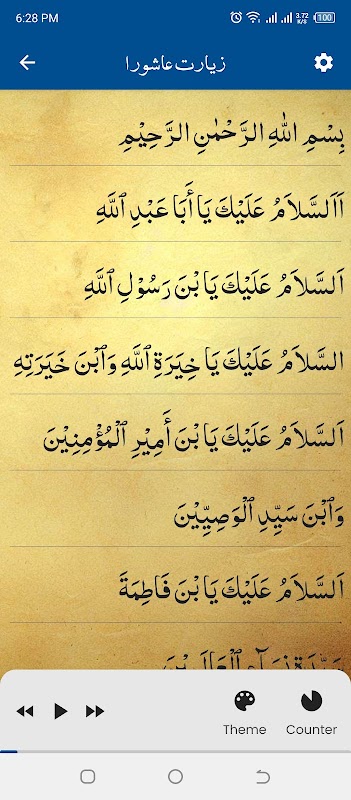 6:28 PM
3.72 K/S 100
زیارت عاشورا
بِسْمِ اللهِ الرَّحْمٰنِ الرَّحِيْمِ
اَلسَّلاَمُ عَلَيْكَ يَا أَبَا عَبْدِ ٱللَّهِ
اَلسَّلاَمُ عَلَيْكَ يَا بْنَ رَسُوْلِ ٱللَّهِ
السَّلاَمُ عَلَيْكَ يَا خِيَرَةِ ٱللَّهِ وَٱبْنَ خَيَرَتِهِ
اَلسَّلاَمُ عَلَيْكَ يَا بْنَ أَمِيْرِ ٱلْمُؤْمِنِيْنَ
وَٱبْنَ سَيِّدِ ٱلْوَصِيِّيْنَ
اَلسَّلاَمُ عَلَيْكَ يَا بْنَ فَاطِمَةَ
Theme
Counter